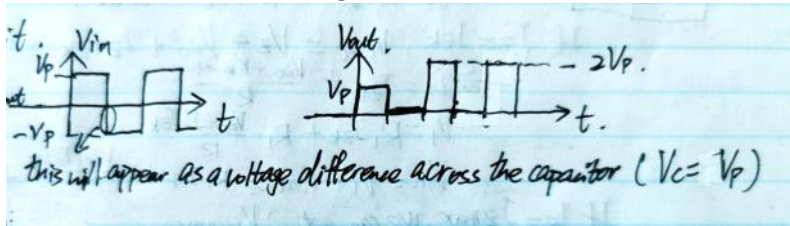 it.
Vin
Vp
-Vp
t
Vout.
Vp
2Vp.
t.
this will appear as a voltage difference across the capacitor (Vc = Vp)